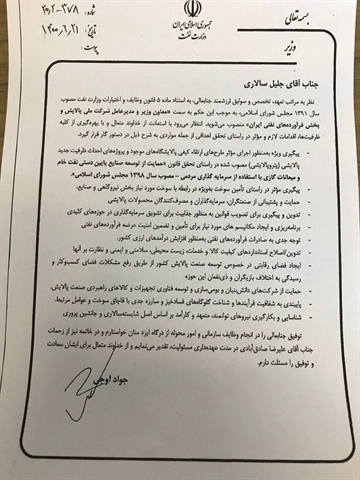 بسمه تعالی
جمهوری اسلامی ایران
وزارت نفت
وزیر
شماره: ۳۷۸-۲۰/۲
تاریخ: ۱۴۰۰/۶/۲۱
پیوست:
جناب آقای جلیل سالاری
نظر به مراتب تعهد، تخصص و سوابق ارزشمند جنابعالی، به استناد ماده ۵ قانون وظایف و اختیارات وزارت نفت مصوب
۱۳۹۱ مجلس شورای اسلامی، به موجب این حکم به سمت «معاون وزیر و مدیرعامل شرکت ملی پالایش و
پخش فرآورده‌های نفتی ایران» منصوب می‌شوید. انتظار می‌رود با استعانت از خداوند متعال و با بهره‌گیری از کلیه
ظرفیت‌ها، اقدامات لازم و مؤثر در راستای تحقق اهدافی از جمله مواردی به شرح ذیل در دستور کار قرار گیرد.
- پیگیری ویژه به‌منظور اجرای مؤثر طرح‌های ارتقاء کیفی پالایشگاه‌های موجود و پروژه‌های احداث ظرفیت جدید
پالایشی (پتروپالایشی) مصوب شده در راستای تحقق قانون «حمایت از توسعه صنایع پایین دستی نفت خام
و میعانات گازی با استفاده از سرمایه گذاری مردمی – مصوب سال ۱۳۹۸ مجلس شورای اسلامی».
- پیگیری مؤثر در راستای تأمین سوخت به‌ویژه در رابطه با سوخت مورد نیاز بخش نیروگاهی و صنایع.
- حمایت و پشتیبانی از صنعتگران، سرمایه‌گذاران و مصرف‌کنندگان محصولات پالایشی
- تدوین و پیگیری برای تصویب قوانین به منظور جذابیت برای تشویق سرمایه‌گذاری در حوزه‌های کلیدی
- برنامه‌ریزی و ایجاد مکانیزم های مورد نیاز برای تأمین و تضمین امنیت عرضه فرآورده‌های نفتی
- توجه جدی به صادرات فرآورده‌های نفتی به‌منظور افزایش درآمدهای ارزی کشور.
- تدوین/اصلاح استانداردهای کیفیت کالا و خدمات، زیست محیطی، سلامتی و ایمنی و نظارت بر آنها
- ایجاد فضای رقابتی در خصوص توسعه صنعت پالایش کشور از طریق رفع مشکلات فضای کسب‌وکار و
رسیدگی به اختلاف بازیگران و ذی‌نفعان این حوزه
- حمایت از شرکت‌های دانش‌بنیان و بومی‌سازی و توسعه فناوری تجهیزات و کالاهای راهبردی صنعت پالایش.
- پایبندی به شفافیت فرآیندها و شناخت گلوگاه‌های فسادخیز و مبارزه جدی با قاچاق سوخت و عوامل مرتبط.
- شناسایی و بکارگیری نیروهای توانمند، متعهد و کارآمد بر اساس اصل شایسته‌سالاری و جانشین پروری
توفیق جنابعالی را در انجام وظایف سازمانی و امور محوله از درگاه ایزد منان خواستارم و در خاتمه نیز از زحمات
جناب آقای علیرضا صادق‌آبادی در مدت عهده‌داری مسئولیت، تقدیر می‌نمایم و از خداوند متعال برای ایشان سعادت
و توفیق را مسئلت دارم.
جواد اوجی